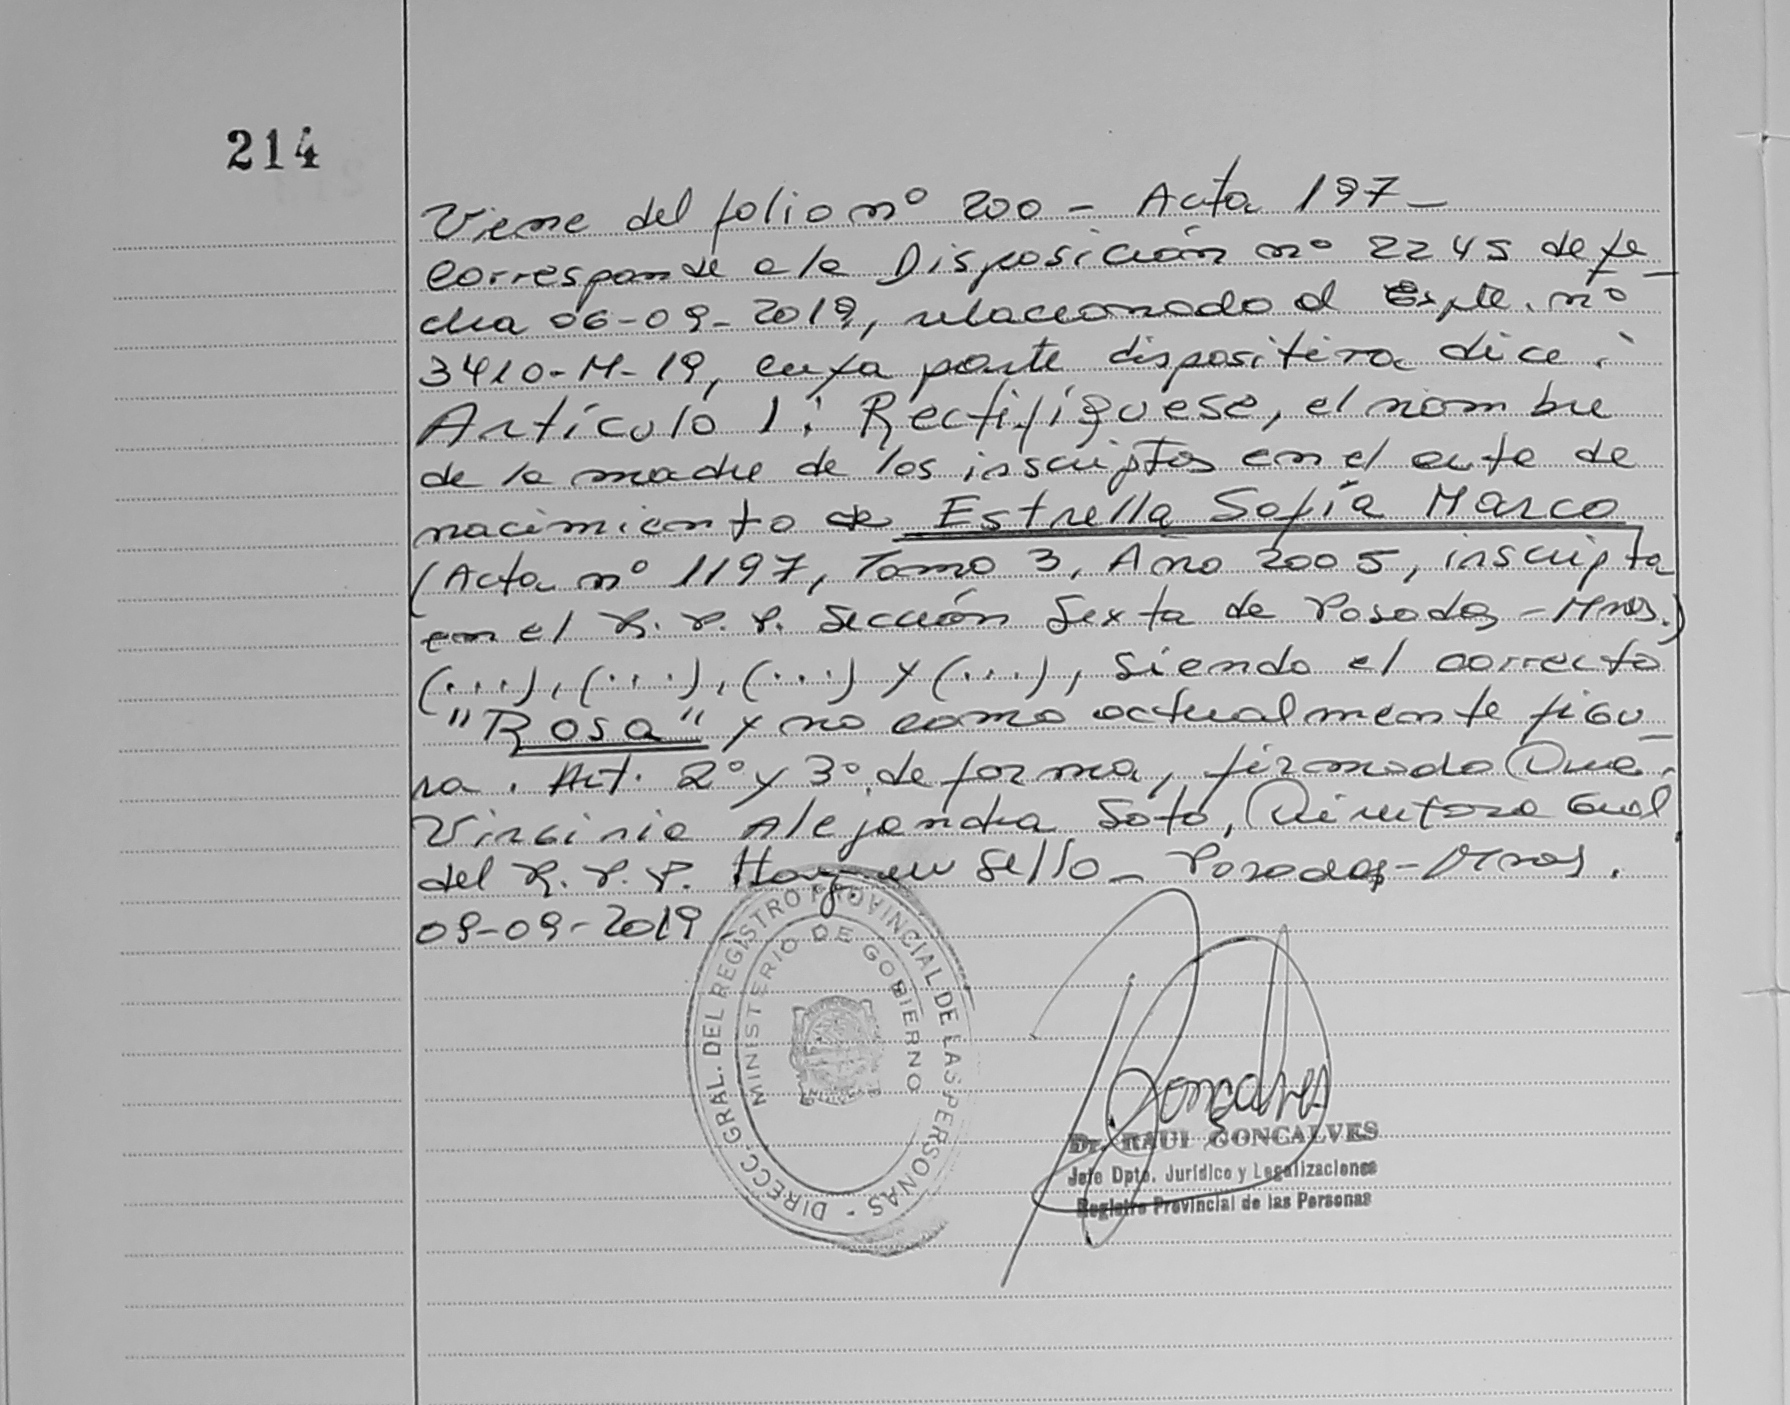 214
Viene del folio nº 200 - Acta 197 -
Corresponde a la Disposición nº 2245 de fe_
cha 06-09-2019, relacionado al Expte. nº
3410-M-19, cuya parte dispositiva dice:
Artículo 1: Rectifíquese, el nombre
de la madre de los inscriptos en el acta de
nacimiento de Estrella Sofía Marco
(Acta nº 1197, Tomo 3, Año 2005, inscripta
en el R. P. P. Sección Sexta de Posadas - Mnes.)
(...), (...), (...) y (...), siendo el correcto
"Rosa" y no como actualmente figu_
ra. Art. 2º y 3º de forma, firmado Dra.
Virginia Alejandra Soto, Directora Gral
del R. P. P. Hay un Sello - Posadas - Mnes.
09-09-2019 -
DIRECC. GRAL. DEL REGISTRO PROVINCIAL DE LAS PERSONAS -
MINISTERIO DE GOBIERNO
Goncalves
Dr. RAUL GONCALVES
Jefe Dpto. Jurídico y Legalizaciones
Registro Provincial de las Personas